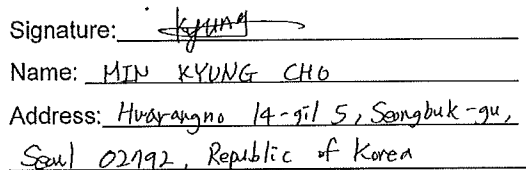 Signature: KYUNG
Name: MIN KYUNG CHO
Address: Hwarangno 14-gil 5, Seongbuk-gu,
Seoul 02792, Republic of Korea